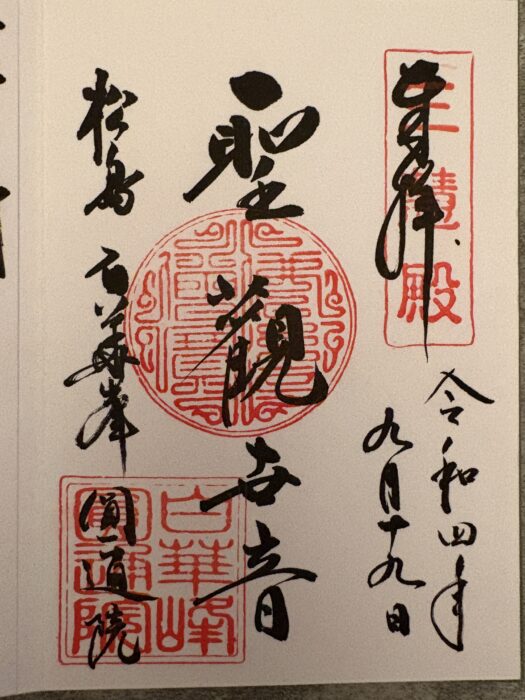 奉拝
三慧殿
令和四年
九月十九日
聖觀世音
松島 白華峯 圓通院
白華峰
圓通院